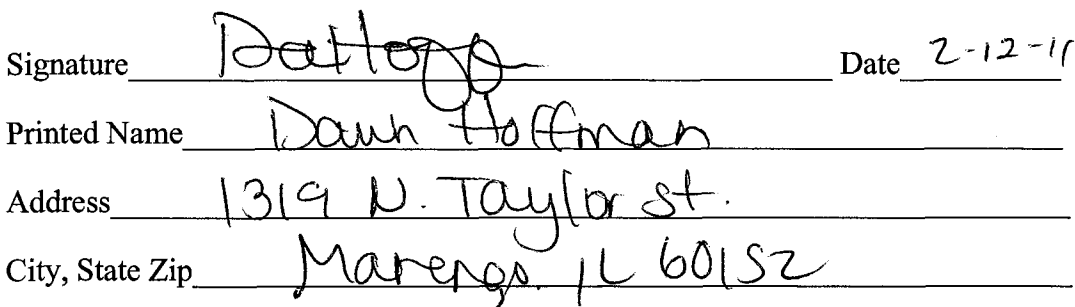 Signature Date 2-12-11
Printed Name Dawn Hoffman
Address 1319 N. Taylor St.
City, State Zip Marengo. IL 60152